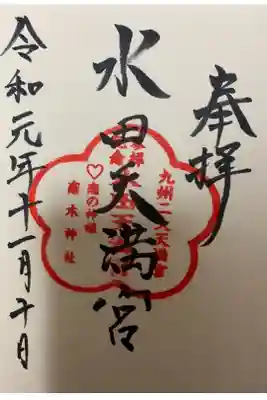 奉拝
九州二大天満宮
水田天満宮
♡恋の神様
恋木神社
令和元年十一月十日